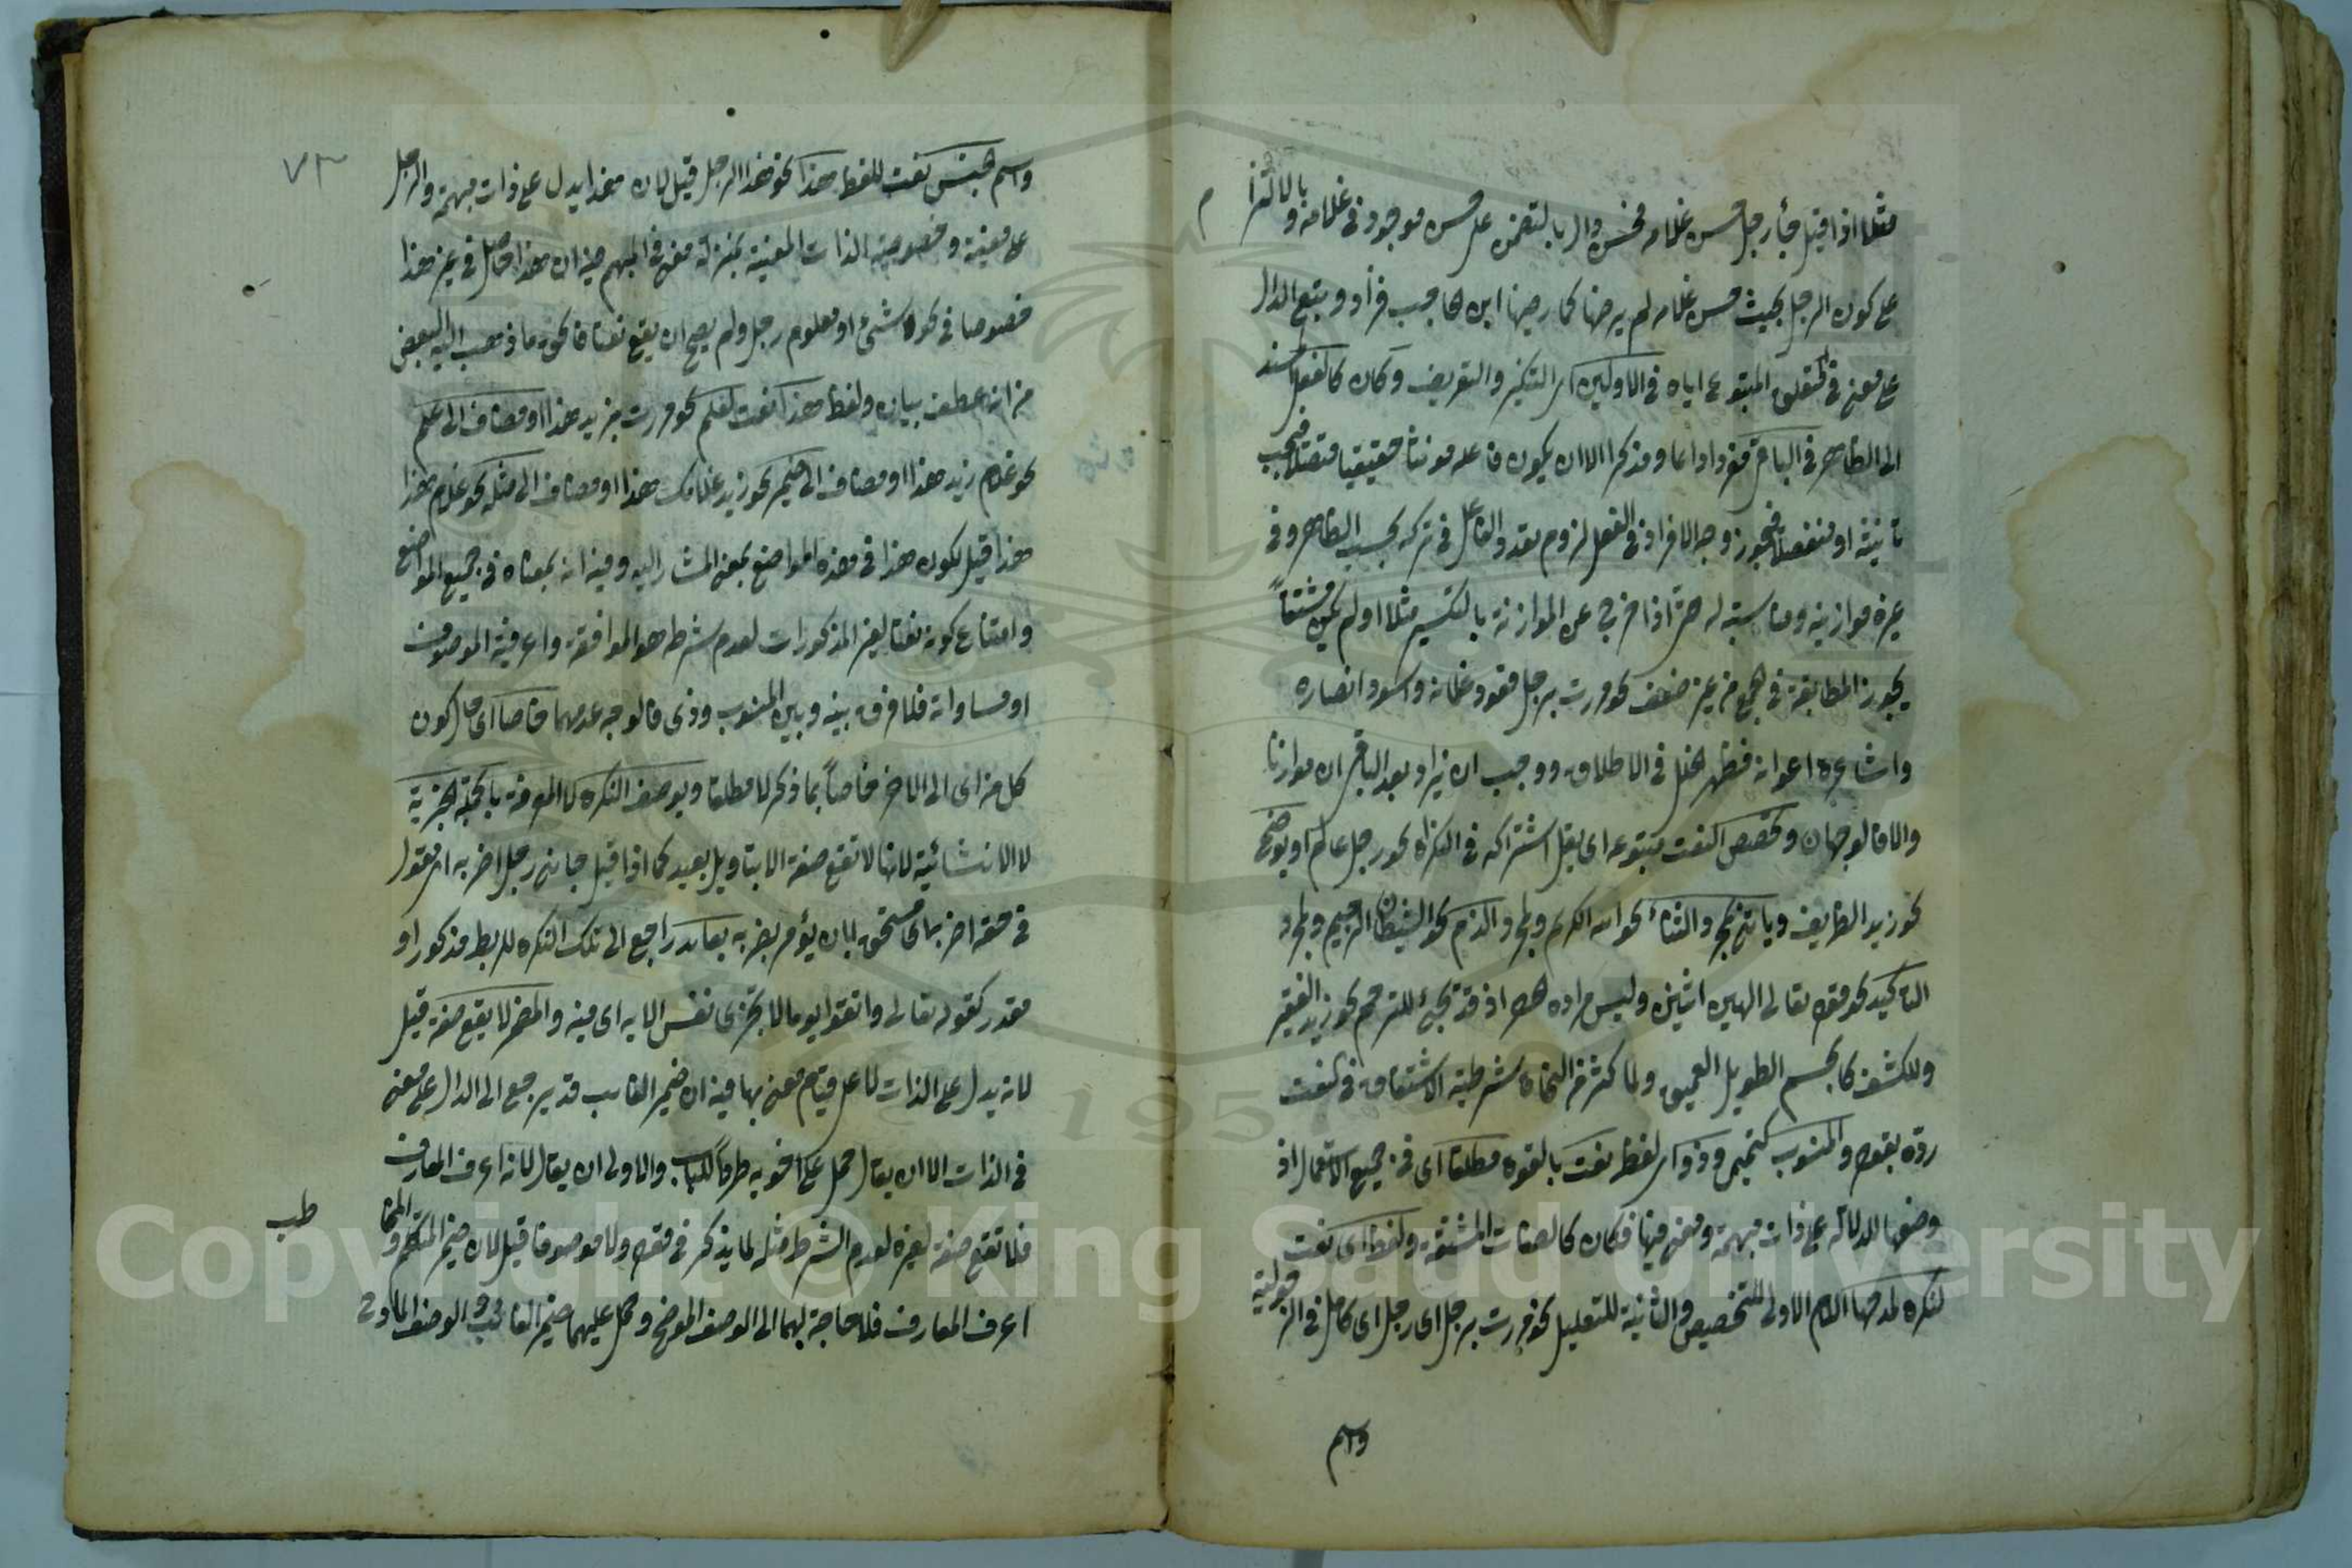 مثلا اذا قيل جاء رجل حسن غلامه فحسن دال بالتضمن على حسن موجود في غلامه وبالالتزام
على كون الرجل بحيث حسن غلامه لم يرضها كما رضيها ابن هاجب
على معنى في متعلق المتبوع اياه في الاولين اى التنكير والتعريف وكان كالفعل المسند
الى الظاهر في الباقى مفردا دائما ومذكرا الا ان يكون فاعله مونثا حقيقيا متصلا فيجب
تانيثه او منفصلا فيجوز وجه الافراد في الفعل لزوم تعدد الفاعل في تركه بحسب الظاهر وفي
غيره موازنته ومناسبته له حتى اذا خرج عن الموازنة بالتكسير مثلا او لم يكن مشتقا
يجوز المطابقة في الجمع من غير ضعف نحو مررت برجل قعود غلمانه واسود انصاره
فظهر الخلل في الاطلاق ووجب ان يزاد بعد الباقى ان موازنا
والا فالوجهان وتخصص النعت متبوعه اى يقل اشتراكه في النكرة نحو رجل عالم او يوضح
نحو زيد الظريف وياتى لمجرد الثناء نحو الله الكريم ولمجرد الذم نحو الشيطان الرجيم ولمجرد
التاكيد نحو قوله تعالى الهين اثنين وليس مراده الحصر اذ قد تجئ للترحم نحو زيد الفقير
وللكشف كالجسم الطويل العميق ولما كثر من النحاة شرطية الاشتقاق في النعت
رده بقوله والمنسوب كتميمى وذو اى لفظ نعت بالقوه مطلقا اى في جميع الاستعمال اذ
وضعها للدلالة على ذات مبهمة ومعنى فيها فكان كالصفات المشتقة ولفظ اى نعت
لنكرة لمدحها اللام الاولى للتخصيص والثانية للتعليل نحو مررت برجل اى رجل اى كامل في الرجولية
واسم
٧٣
واسم جنس نعت للفظ هذا نحو هذا الرجل قيل لان هذا يدل على ذات مبهمة والرجل
على معينة وخصوصية الذات المعينة بمنزلة معنى في المبهم فيه ان هذا حاصل في غير هذا
خصوصا في نحو شئ او معلوم رجل ولم يصح ان يقع نعتا فالحق ما ذهب اليه البعض
من انه عطف بيان ولفظ هذا نعت لعلم نحو مررت بزيد هذا او مضاف الى علم
نحو غلام زيد هذا او مضاف الى ضمير نحو زيد غلامك هذا او مضاف الى مثله نحو غلام هذا
هذا قيل لكون هذا في هذه المواضع بمعنى المشار اليه وفيه انه بمعناه في جميع المواضع
وامتناع كونه نعتا لغير المذكورات لعدم شرط هو الموافقة واعرفية الموصوف
او مساواته فلا فرق بينه وبين المنسوب وذى فالوجه عدهما خاصا اى حال كون
كل من اى الى الاخر خاصا بما ذكر لا مطلقا ويوصف النكره لا المعرفة بالجملة الخبرية
لا الانشائية لانها لا تقع صفة الا بتاويل بعيد كما اذا قيل جاءنى رجل اضربه اى مقول
في حقه اضربه اى مستحق لان يؤمر بضربه بعائد راجع الى تلك النكره للربط مذكور او
مقدر كقوله تعالى واتقوا يوما لا تجزى نفس الايه اى فيه والمضمر لا يقع صفة قيل
لانه يدل على الذات لا على قيام معنى بها فيه ان ضمير الغائب قد يرجع الى الدال على معنى
في الذات الا ان يقال حمل على اخويه طردا للباب والاولى ان يقال لانه اعرف المعارف
فلا تقع صفة لغيره لعدم الشرط مثله لما يذكر في قوله ولا موصوفا قيل لان ضمير المتكلم والمخاطب
اعرف المعارف فلا حاجة لهما الى الوصف الموضح وحمل عليهما ضمير الغائب الوصف المادح